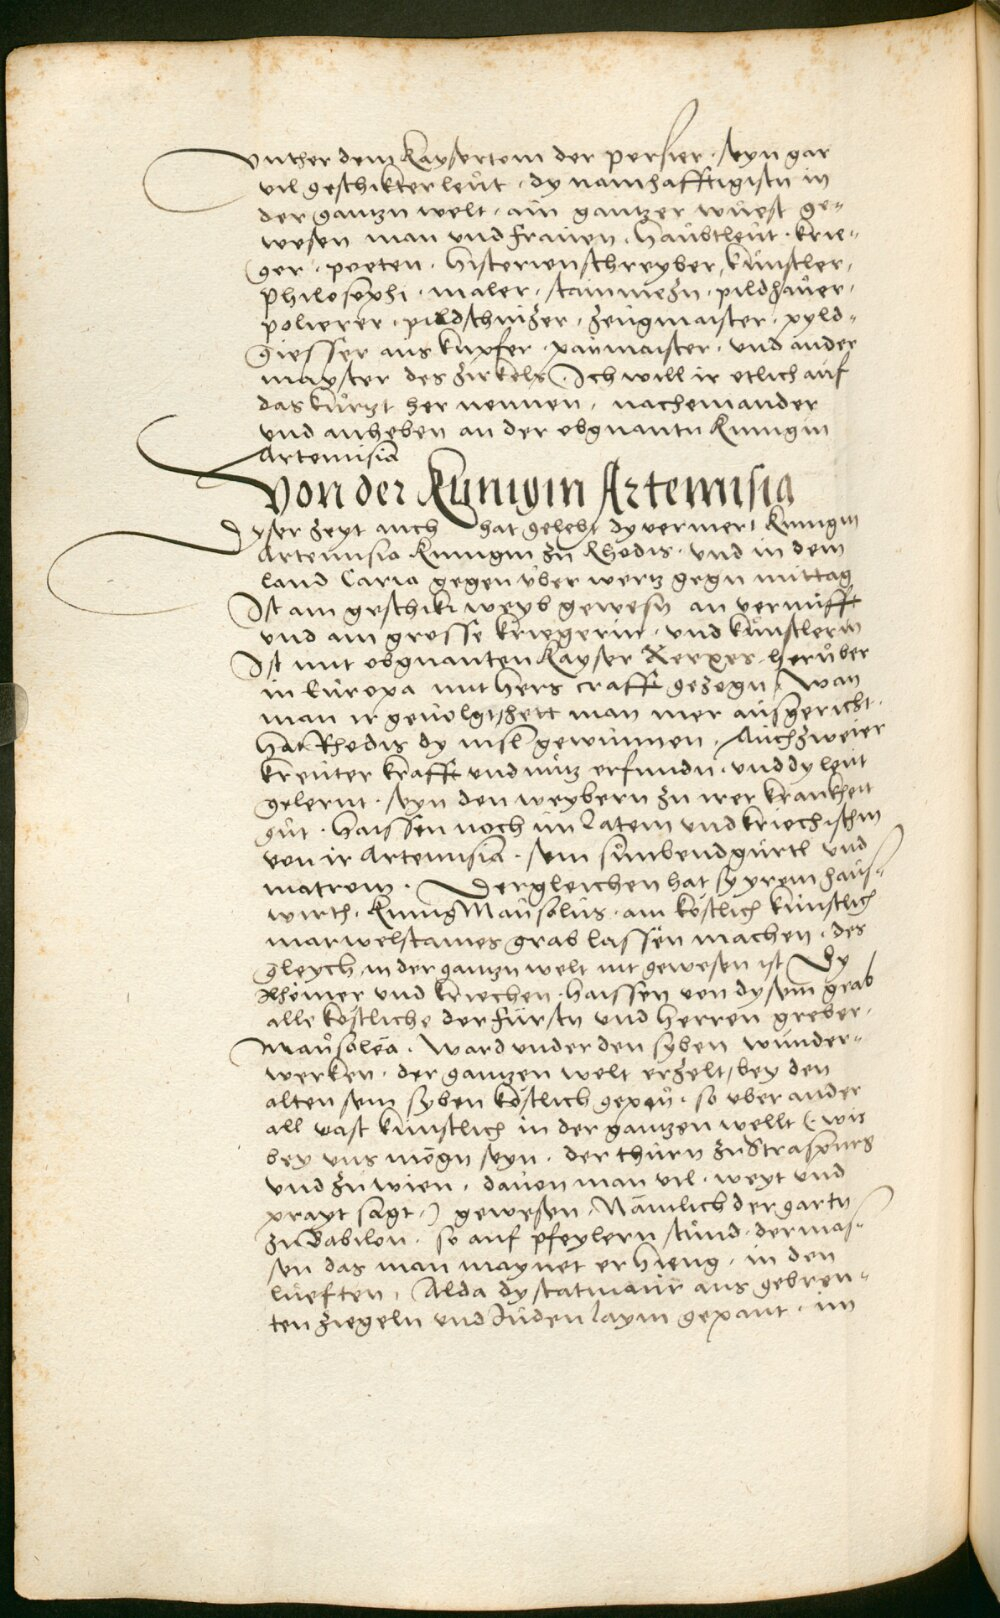 Vnther dem Kaysertom der persier · seyn gar
vil geschikter leůt · dy namhafftigistn in
der gantzn welt · ain gantzer wůest ge=
wesen man vnd fraůen · haůbtleůt · krie=
ger · poeten · historienschreyber, kůnstler,
philosophi · maler · stainmezn · pildhaůer,
polierer · pildschnizer · zeůgmaister · pyld=
giesser aus kupfer · paůmaister · vnd ander
mayster des zirkels · Ich will ir etlich auf
das kůrtzt her nennen, nacheinander
vnd anheben an der obgnantn Kunigin
Artemisia
Von der Kunigin Artemisia
Dyser zeyt auch hat gelebt dy vermert Kunigin
Artemisia Kunigin zu Rhodis · vnd in dem
land Caria gegen vber wertz gegn mittag
Ist ain geschikt weyb gewesn an vernůfft
vnd ain grosse kriegerin · vnd kůnstlerin
Ist mit obgnanten Kayser Xerxes herůber
in Eůropa mit hers crafft gezogn, wan
man ir geuolgt, hett man mer ausgericht ·
Hat Rhodis dy insl gewunnen · Auch zweier
kreůter krafft vnd nůtz erfundn · vnd dy leůt
gelernt · seyn den weybern zu irer krankheit
gůt · haissen noch im latein vnd kriechischn
von ir Artemisia · sein sunbendgůrtl vnd
matrem · Dergleichen hat sy yrem haůs=
wirth · Kunig Maůsolůs · ain kostlich kůnstlich
marwelstaines grab lassen machen · des
gleych, in der gantzn welt nit gewesen ist Dy
Rhömer vnd kriechen, haissen von dysem grab
alle kostliche der fůrstn vnd herren greber ·
Maůsolea · Ward vnder den syben wůnder=
werken · der gantzen welt erzelt, bey den
alten sein syben kostlich gepaů · so vber ander
all vast kůnstlich in der gantzen wellt (: wie
bey vns mögn seyn · der thůrn zu Straspurg
vnd zu wien, dauon man vil · weyt vnd
prayt sagt :) gewesen, Nämlich der gartn
zu Babilon · so auf pfeylern stůnd · dermas=
sen das man maynet er hieng · in den
lůeften, Alda dy statmaůr aus gebren=
ten ziegeln vnd Juden laym gepaut · im